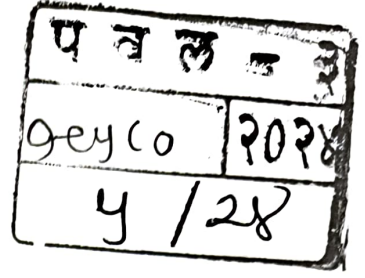 प व ल - ३
१९५८० २०२४
५ / २४